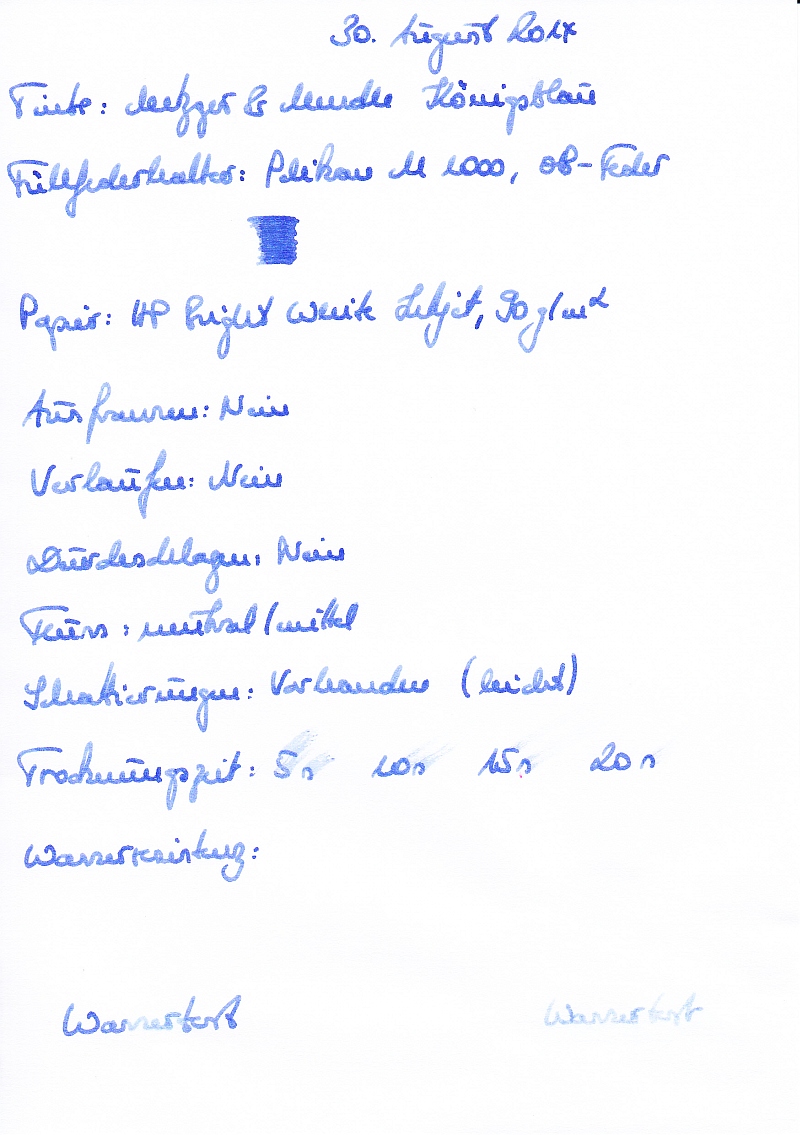 30. August 2017
Tinte: Metzger & Mendle Königsblau
Füllfederhalter: Pelikan M 1000, OB-Feder
Papier: HP Bright White InkJet, 90 g/m²
Ausfransen: Nein
Verlaufen: Nein
Durchschlagen: Nein
Fluss: neutral/mittel
Schattierungen: Vorhanden (leicht)
Trocknungszeit: 5s 10s 15s 20s
Wasserresistenz:
Wassertest Wassertest